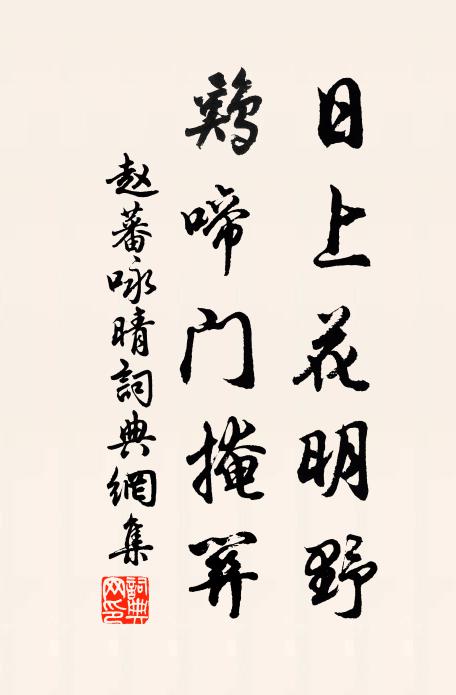 日上花明野
鷄啼门掩關
赵蕃咏晴詞典網集
詞典
网印